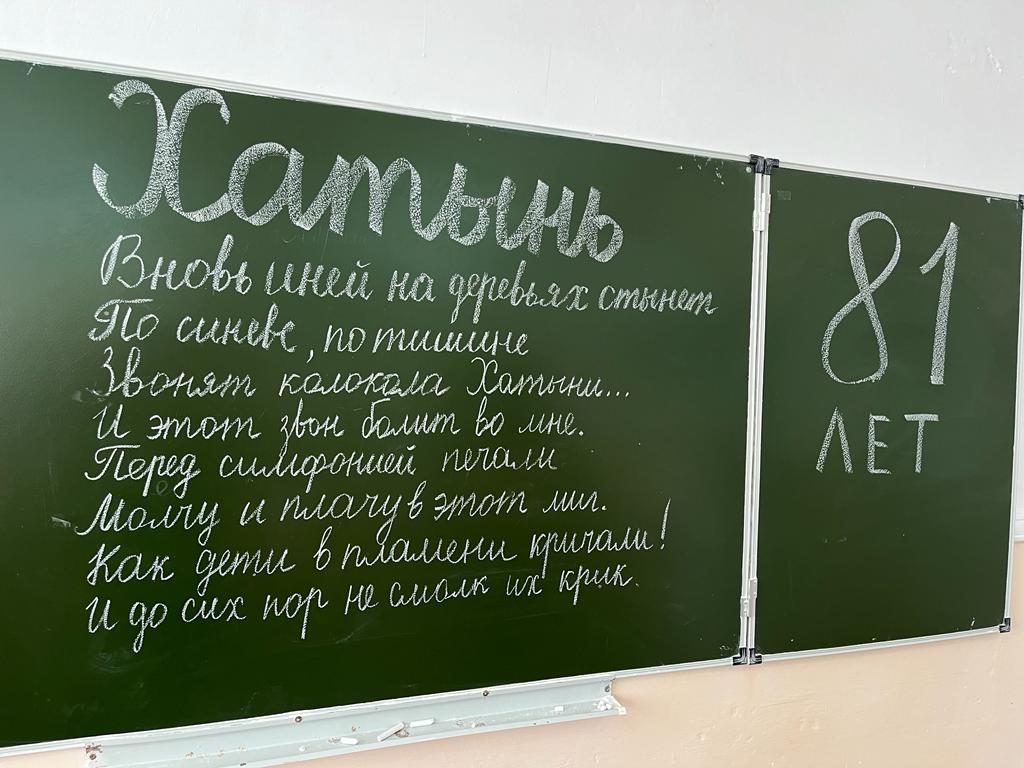 Хатынь
Вновь иней на деревьях стынет
По синеве, по тишине
Звонят колокола Хатыни...
И этот звон болит во мне.
Перед симфонией печали
Молчу и плачу в этот миг.
Как дети в пламени кричали!
И до сих пор не смолк их крик.
81
ЛЕТ